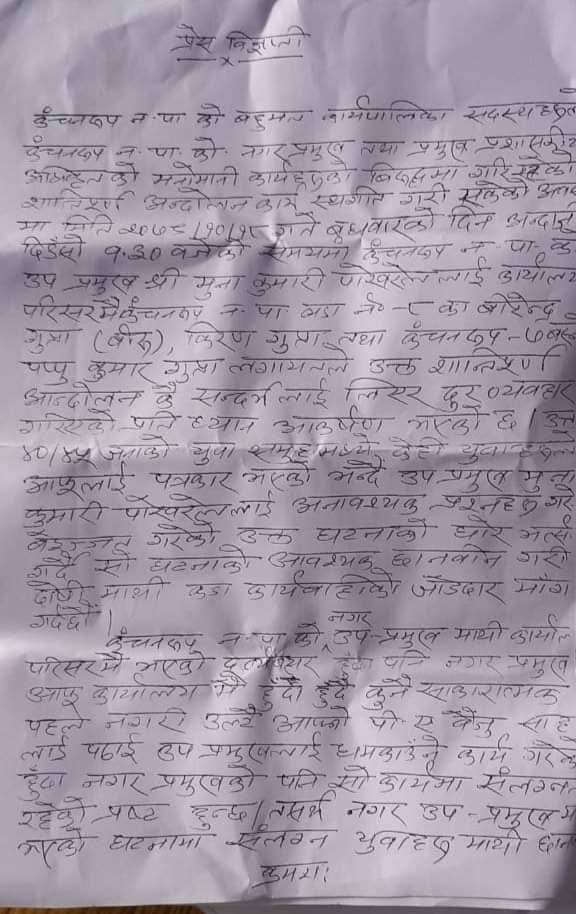 प्रेस विज्ञप्ती
कंचनरूप न.पा को बहुमत कार्यपालिका सदस्यहरुले
कंचनरूप न.पा. को. नगर प्रमुख तथा प्रमुख प्रशासकीय
को मनोमानी कार्यहरुको बिरुद्धमा गरिरहेको
शान्तिपूर्ण आन्दोलन कार्य स्थगित गरी सकेको
मा मिति २०७८/१०/१९ गते बुधवारको दिन अन्दाजी
दिउँसो १.३० बजेको समयमा कंचनरूप न.पा. का
उप प्रमुख श्री मुना कुमारी पोखरेल लाई कार्यालय
परिसरमै कंचनरूप न.पा. वडा नं-८ का बीरेन्द्र
गुप्ता (बीरू), किरण गुप्ता तथा कंचनरूप-७ बस्ने
पप्पु कुमार गुप्ता लगायतले उक्त शान्तिपूर्ण
आन्दोलन कै सन्दर्भ लाई लिएर दुर व्यवहार
गरिएको प्रति ध्यान आकर्षण भएको छ। उक्त
४०/४५ जनाको युवा समुह मध्ये केही युवाहरुले
आफूलाई पत्रकार भएको भन्दै उप प्रमुख मुना
कुमारी पोखरेललाई अनावश्यक प्रश्नहरु गरी
बेइज्जत गरेको उक्त घटनाको घोर भर्त्सना
गर्दै सो घटनाको आवश्यक छानवीन गरी
दोषी माथी कडा कार्यवाहीको जोडदार माग
गर्दछौं।
कंचनरूप न.पा. को नगर उप-प्रमुख माथी कार्यालय
परिसरमै भएको दुर्व्यवहार हुँदा पनि नगर प्रमुख
आफू कार्यालय मै हुँदा हुँदै कुनै साकारात्मक
पहल नगरी उल्टै आफ्नो पी.ए बैजु साह
लाई पठाई उप प्रमुखलाई धम्काउने कार्य गरेको
हुँदा नगर प्रमुखको पनि सो कार्यमा संलग्नता
रहेको प्रष्ट हुन्छ। तसर्थ नगर उप-प्रमुख
भएको घटनामा संलग्न युवाहरु माथी
क्रमश: